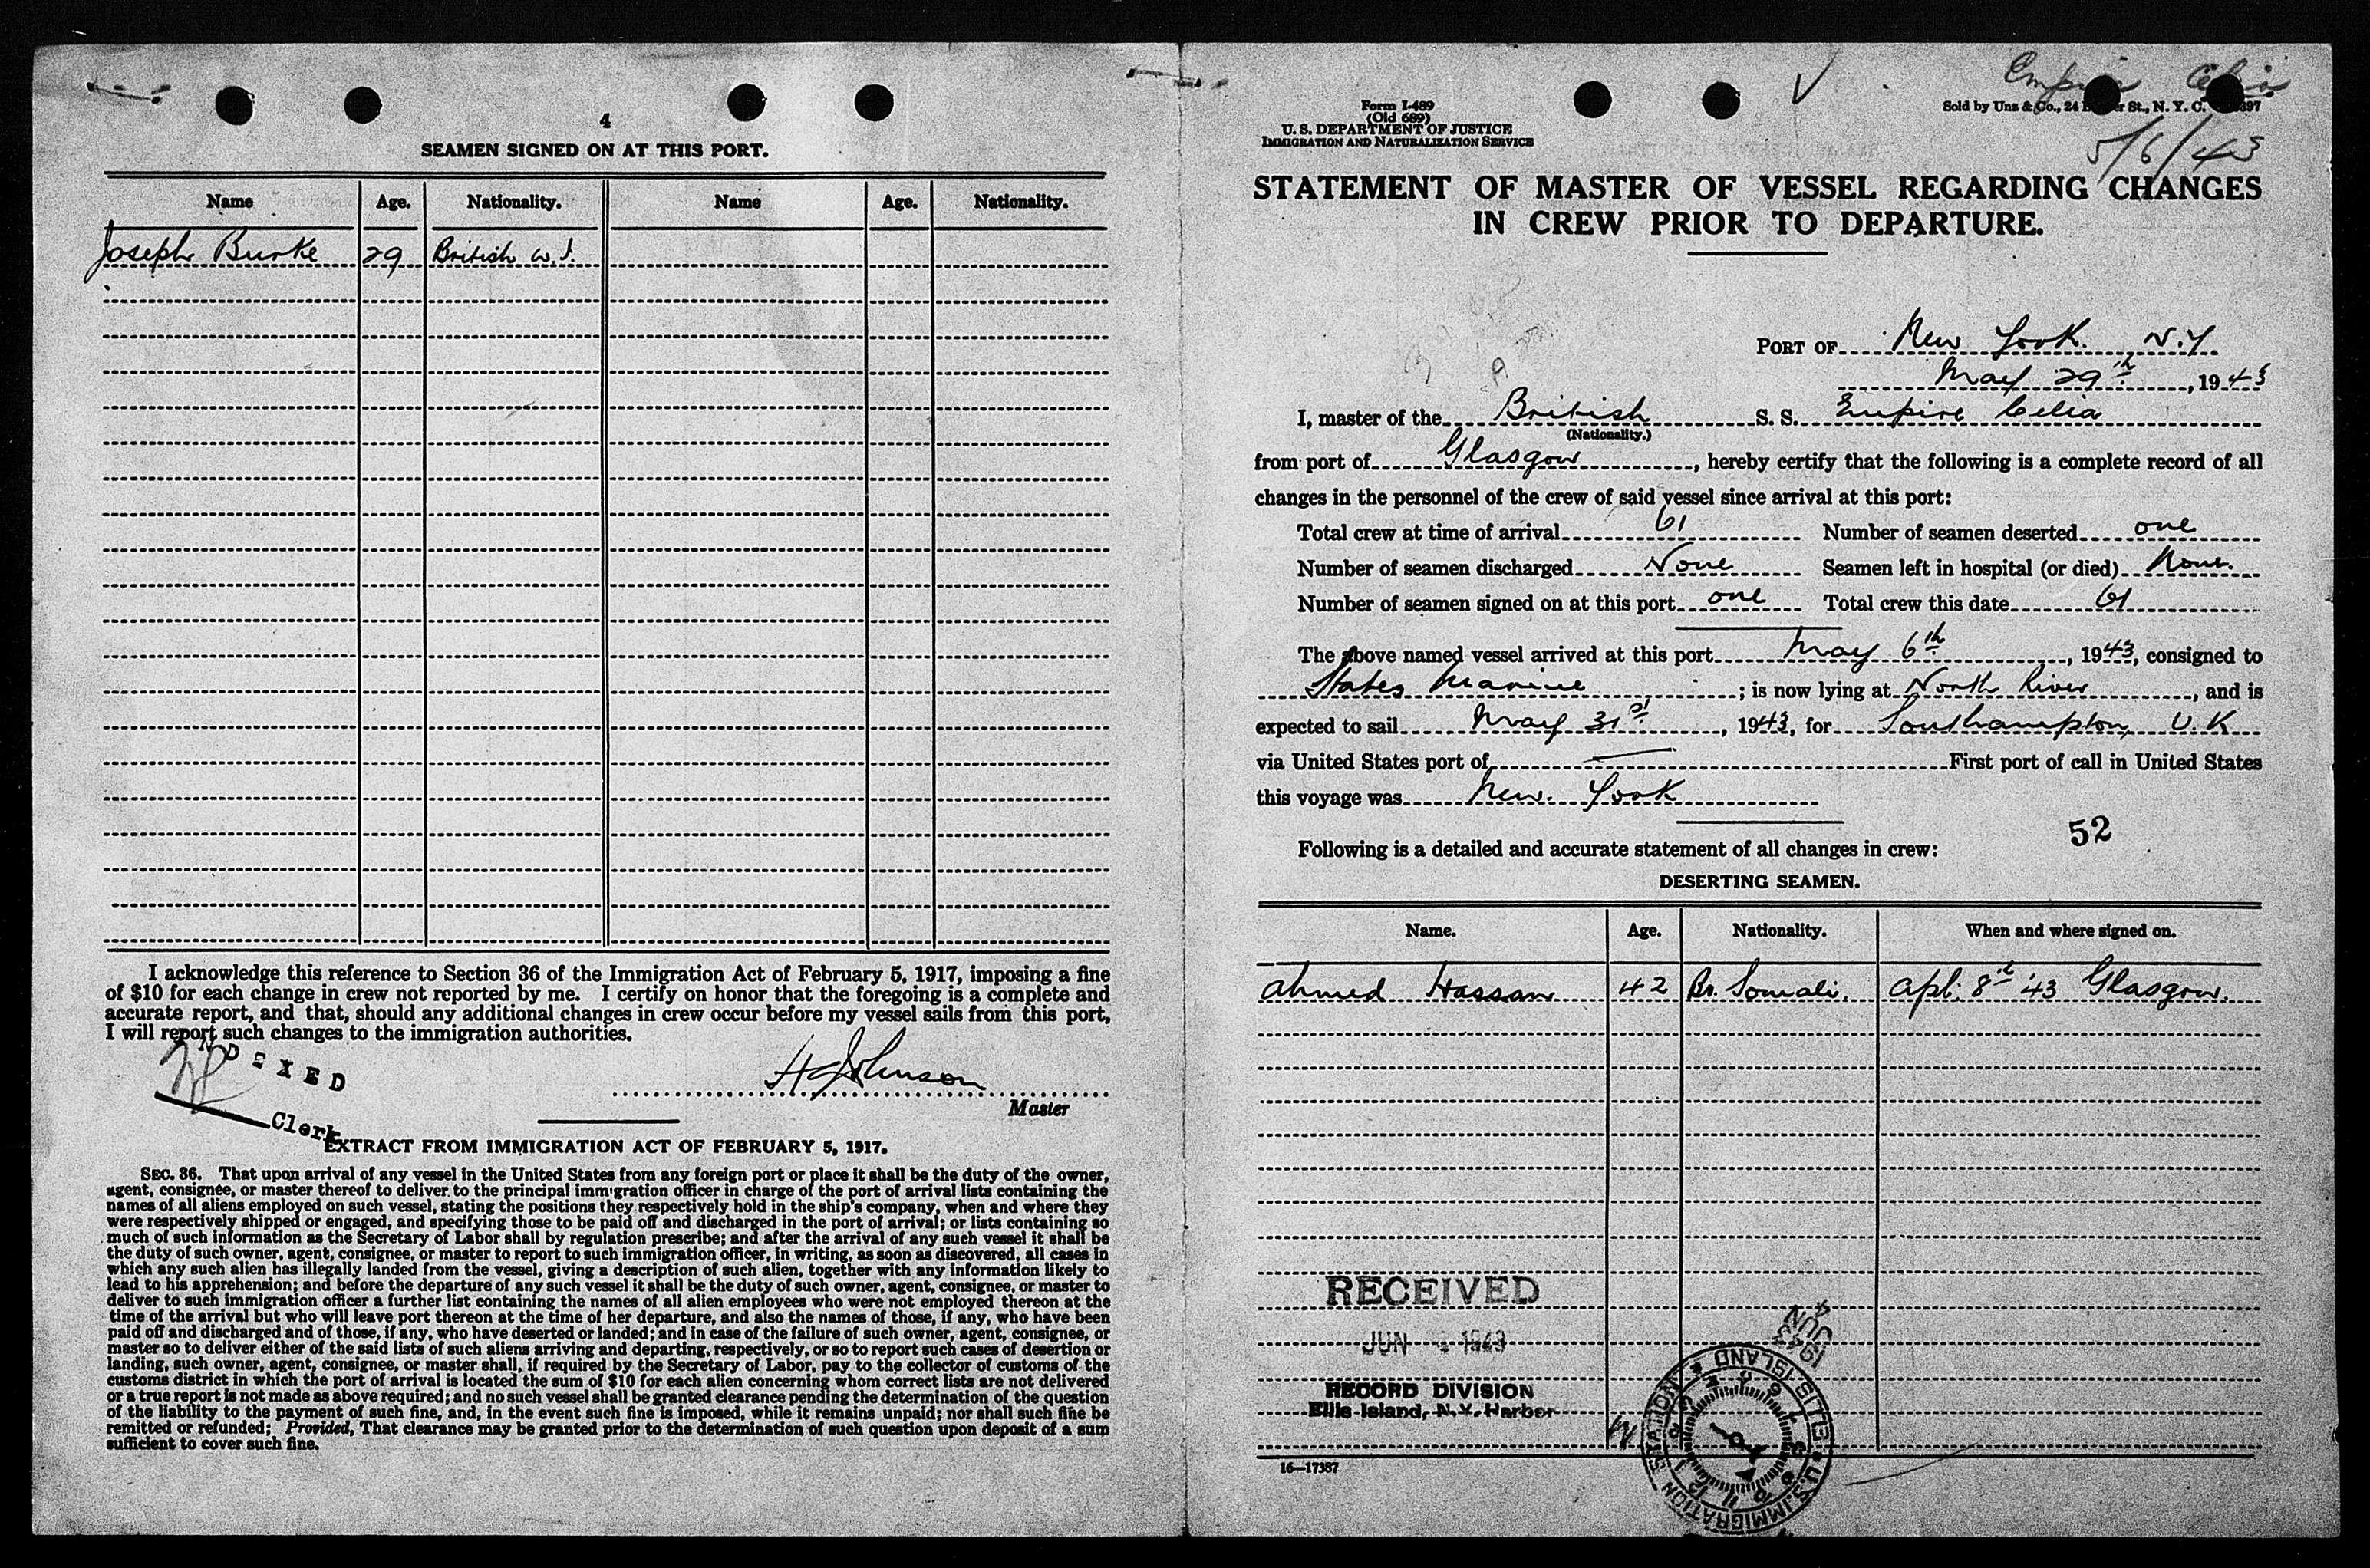 4
SEAMEN SIGNED ON AT THIS PORT.
Name Age. Nationality. Name Age. Nationality.
Joseph Burke 29 British W.I.
I acknowledge this reference to Section 36 of the Immigration Act of February 5, 1917, imposing a fine
of $10 for each change in crew not reported by me. I certify on honor that the foregoing is a complete and
accurate report, and that, should any additional changes in crew occur before my vessel sails from this port,
I will report such changes to the immigration authorities.
NDEXED
H Johnson
Master
Clerk
EXTRACT FROM IMMIGRATION ACT OF FEBRUARY 5, 1917.
SEC. 36. That upon arrival of any vessel in the United States from any foreign port or place it shall be the duty of the owner,
agent, consignee, or master thereof to deliver to the principal immigration officer in charge of the port of arrival lists containing the
names of all aliens employed on such vessel, stating the positions they respectively hold in the ship's company, when and where they
were respectively shipped or engaged, and specifying those to be paid off and discharged in the port of arrival; or lists containing so
much of such information as the Secretary of Labor shall by regulation prescribe; and after the arrival of any such vessel it shall be
the duty of such owner, agent, consignee, or master to report to such immigration officer, in writing, as soon as discovered, all cases in
which any such alien has illegally landed from the vessel, giving a description of such alien, together with any information likely to
lead to his apprehension; and before the departure of any such vessel it shall be the duty of such owner, agent, consignee, or master to
deliver to such immigration officer a further list containing the names of all alien employees who were not employed thereon at the
time of the arrival but who will leave port thereon at the time of her departure, and also the names of those, if any, who have been
paid off and discharged and of those, if any, who have deserted or landed; and in case of the failure of such owner, agent, consignee, or
master so to deliver either of the said lists of such aliens arriving and departing, respectively, or so to report such cases of desertion or
landing, such owner, agent, consignee, or master shall, if required by the Secretary of Labor, pay to the collector of customs of the
customs district in which the port of arrival is located the sum of $10 for each alien concerning whom correct lists are not delivered
or a true report is not made as above required; and no such vessel shall be granted clearance pending the determination of the question
of the liability to the payment of such fine, and, in the event such fine is imposed, while it remains unpaid; nor shall such fine be
remitted or refunded; Provided, That clearance may be granted prior to the determination of such question upon deposit of a sum
sufficient to cover such fine.
Empire Celia
Form I-489
(Old 689)
U. S. DEPARTMENT OF JUSTICE
IMMIGRATION AND NATURALIZATION SERVICE
Sold by Unz & Co., 24 St., N. Y. C.
5/6/43
STATEMENT OF MASTER OF VESSEL REGARDING CHANGES
IN CREW PRIOR TO DEPARTURE.
PORT OF New York. N.Y.
May 29th, 1943
I, master of the British S. S. Empire Celia
(Nationality.)
from port of Glasgow, hereby certify that the following is a complete record of all
changes in the personnel of the crew of said vessel since arrival at this port:
Total crew at time of arrival 61 Number of seamen deserted one
Number of seamen discharged None Seamen left in hospital (or died) None.
Number of seamen signed on at this port one Total crew this date 61
The above named vessel arrived at this port May 6th, 1943, consigned to
States Marine; is now lying at North River, and is
expected to sail May 31st, 1943, for Southampton, U.K
via United States port of — First port of call in United States
this voyage was New York
52
Following is a detailed and accurate statement of all changes in crew:
DESERTING SEAMEN.
Name. Age. Nationality. When and where signed on.
Ahmed Hassan 42 Br. Somali. Apl. 8th '43 Glasgow.
RECEIVED
JUN 4 1943
RECORD DIVISION
Ellis Island, N.Y. Harbor
JUN 4 1943
U.S. IMMIGRATION STATION ELLIS ISLAND
16—17357